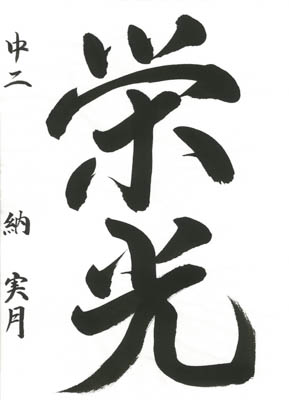 栄光
中二 納 実月